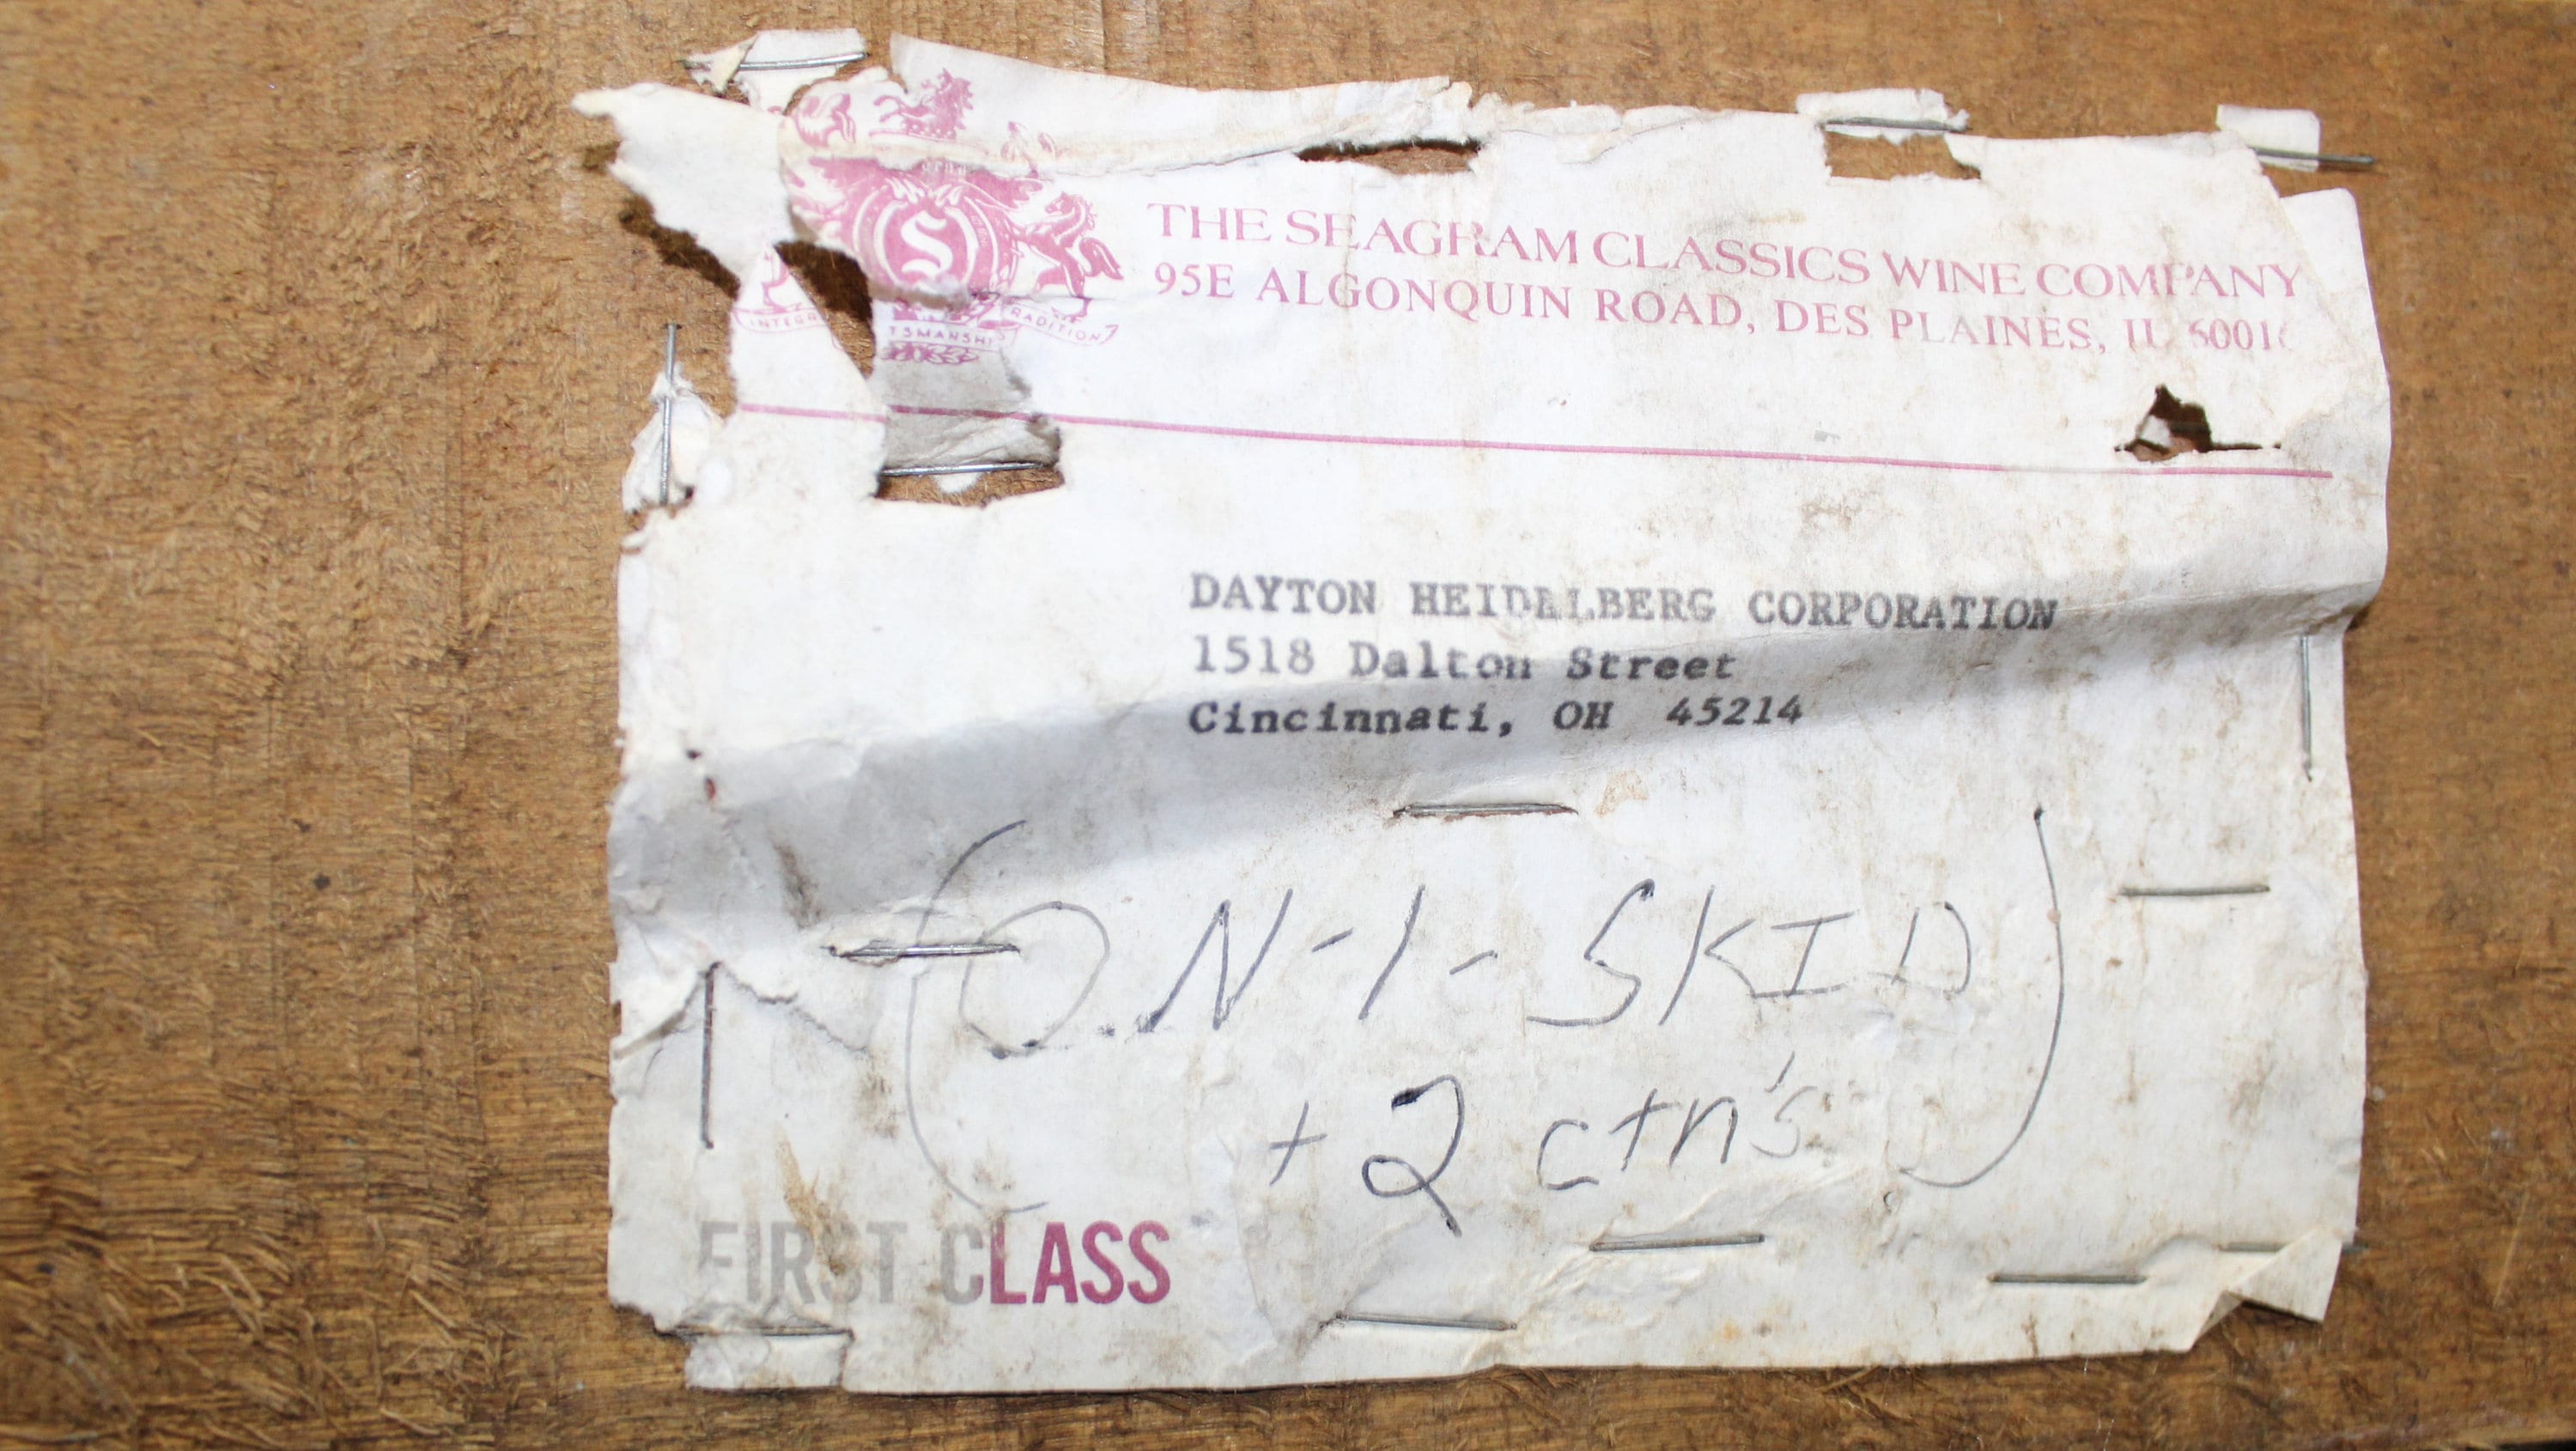 S
THE SEAGRAM CLASSICS WINE COMPANY
95E ALGONQUIN ROAD, DES PLAINES, IL 60016
TRADITION
DAYTON HEIDELBERG CORPORATION
1518 Dalton Street
Cincinnati, OH 45214
(O.N-1-SKID
+ 2 ctn's)
FIRST CLASS